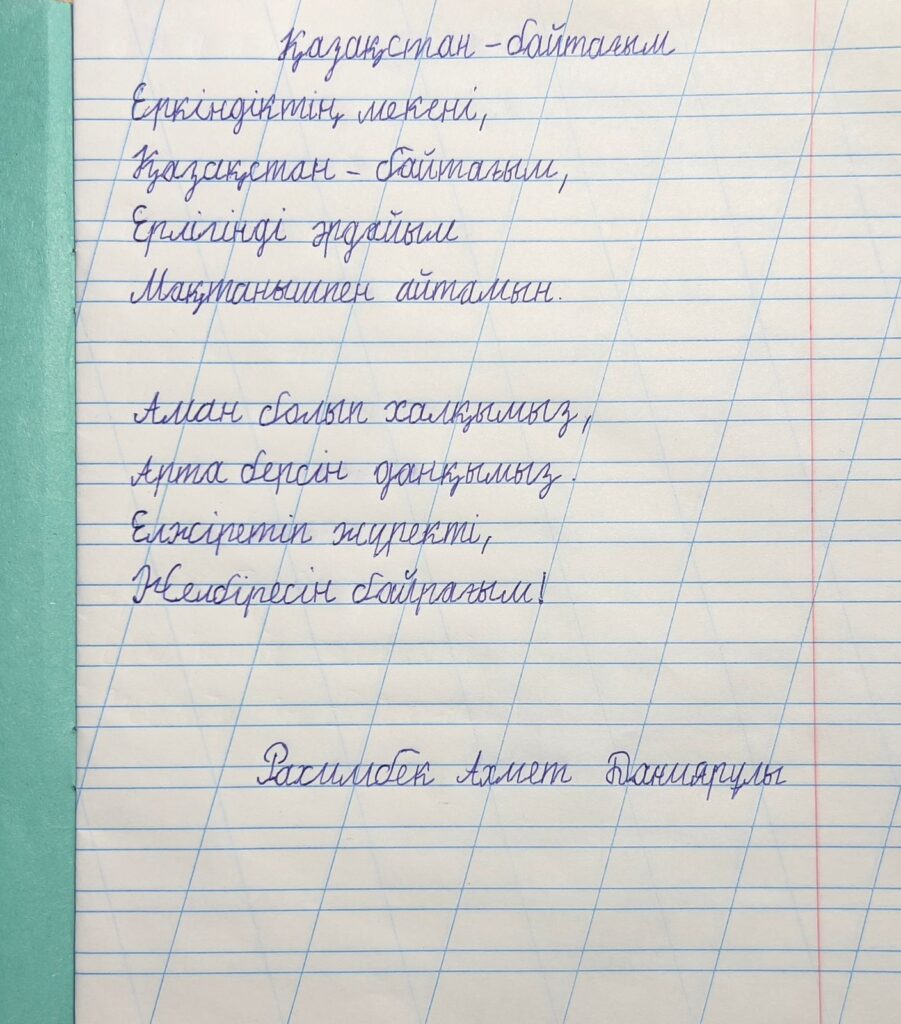 Қазақстан – байтағым
Еркіндіктің мекені,
Қазақстан – байтағым,
Ерлігінді әрдайым
Мақтанышпен айтамын.
Аман болып халқымыз,
Арта берсін данқымыз.
Елжіретіп жүректі,
Желбіресін байрағым!
Рахимбек Ахмет Даниярұлы